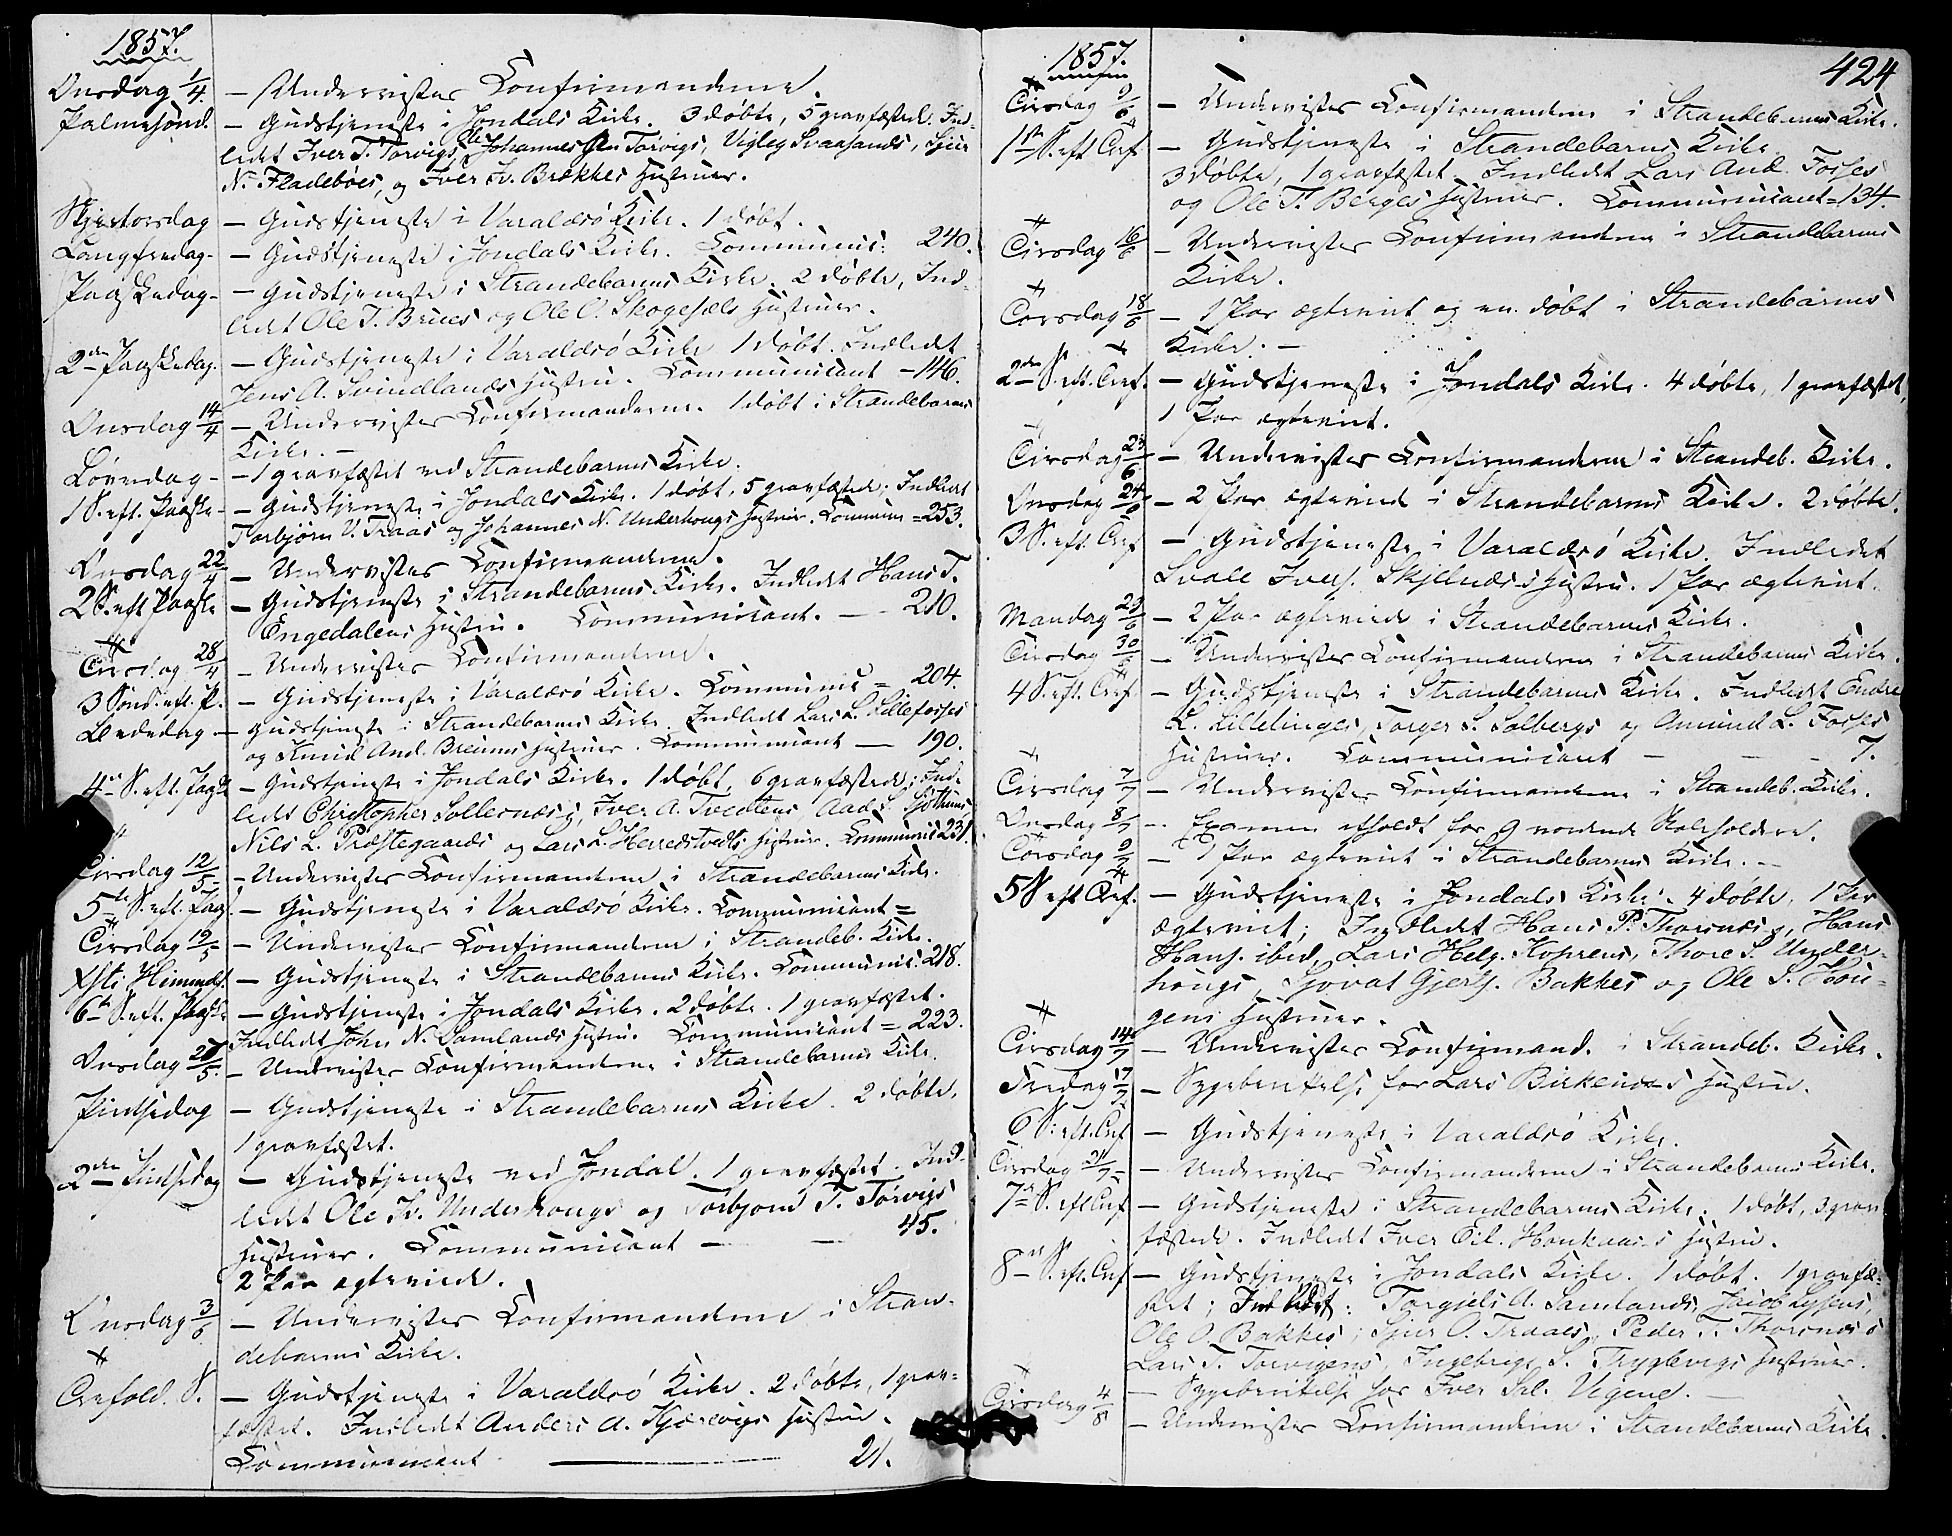 1857.
Onsdag 1/4. – Undervistes Confirmanderne.
Palmesønd. – Gudstjeneste i Jondals Kirke. 3 døbte, 5 gravfæstede. Ind-
ledt Iver T. Torvigs, Johannes Torvigs, Vigleg Svaasands, Sjur
N. Fladebøes, og Iver Iv. Brækkes Hustruer.
Skjertorsdag – Gudstjeneste i Varaldsø Kirke. 1 døbt.
Langfredag – Gudstjeneste i Jondals Kirke. Communic: 240.
Paaskedag – Gudstjeneste i Strandebarms Kirke. 2 døbte, Ind-
ledt Ole T. Brues og Ole O. Skogesæls Hustruer.
2den Paaskedag. – Gudstjeneste i Varaldsø Kirke 1 døbt. Indledt
Jens A. Svindlands Hustru. Communicant – 146.
Onsdag 14/4 – Undervistes Confirmanderne. 1 døbt i Strandebarms
Kirke. –
Løverdag – – 1 gravfæstet ved Strandebarms Kirke.
1 S. eft. Paaske – Gudstjeneste i Jondals Kirke. 1 døbt, 5 gravfæstede; Indledt
Torbjørn V. Traas og Johannes N. Underhougs Hustruer. Commun = 253.
Onsdag 22/4 – Undervistes Confirmanderne.
2 S. eft Paaske – Gudstjeneste i Strandebarms Kirke. Indledt Hans T.
Engedalens Hustru. Communicant. – 210.
Tirsdag 28/4 – Undervistes Confirmanderne.
3 Sønd. eft. P. – Gudstjeneste i Varaldsø Kirke. Communic = 204.
Bededag – Gudstjeneste i Strandebarms Kirke. Indledt Lars L. Lillefosses
og Knud And. Breiuns Hustruer. Communicant – 190.
4de S. eft. Paaske – Gudstjeneste i Jondals Kirke. 1 døbt, 6 gravfæstede; Ind-
ledt Christopher Sollesnæs, Iver A. Tvedtens, Aad S. Sjøthuns
Nils L. Præstegaards og Lars L. Herredstvedts Hustruer. Communic 231.
Tirsdag 12/5 – Undervistes Confirmanderne i Strandebarms Kirke.
5te S. eft. Paa – Gudstjeneste i Varaldsø Kirke. Communicant =
Tirsdag 19/5 – Undervistes Confirmanderne i Strandeb. Kirke.
Xsti Himmelf. – Gudstjeneste i Strandebarms Kirke. Communic. 218.
6te S. eft. Paaske – Gudstjeneste i Jondals Kirke. 2 døbte. 1 gravfæstet.
Indledt John N. Samlands Hustru. Communicant = 223.
Onsdag 27/5. – Undervistes Confirmanderne i Strandebarms Kirke.
Pintsedag – Gudstjeneste i Strandebarms Kirke. 2 døbte.
1 gravfæstet.
2den Pintsedag – Gudstjeneste ved Jondal. 1 gravfæstet. Ind-
ledt Ole Iv. Underhougs og Torbjørn T. Torvigs
Hustruer. Communicant – – 45.
2 Par ægteviede.
Onsdag 3/6 – Undervistes Confirmanderne i Stran-
debarms Kirke.
Trefold. S. – Gudstjeneste i Varaldsø Kirke. 2 døbte, 1 grav-
fæstet. Indledt Anders A. Kjærevigs Hustru.
Communicant 21.
1857.
424
Tirsdag 9/6 – Undervistes Confirmanderne i Strandebarms Kirke.
1ste S. eft Tref – Gudstjeneste i Strandebarms Kirke.
3 døbte, 1 gravfæstet. Indledt Lars And. Fosses
og Ole T. Berges Hustruer. Communicant = 134.
Tirsdag 16/6 – Undervistes Confirmanderne i Strandebarms
Kirke.
Torsdag 18/6 – 1 Par ægteviet og en døbt i Strandebarms
Kirke. –
2den S. eft. Tref. – Gudstjeneste i Jondals Kirke. 4 døbte, 1 gravfæstet,
1 Par ægteviet.
Tirsdag 23/6 – Undervistes Confirmanderne i Strandeb. Kirke.
Onsdag 24/6 – 2 Par ægteviede i Strandebarms Kirke. 2 døbte.
3 S. eft. Tref – Gudstjeneste i Varaldsø Kirke. Indledt
Svale Ivers. Skjelnæs's Hustru. 1 Par ægteviet.
Mandag 29/6 – 2 Par ægteviede i Strandebarms Kirke.
Tirsdag 30/6 – Undervistes Confirmanderne i Strandebarms Kirke.
4 S. eft. Tref. – Gudstjeneste i Strandebarms Kirke. Indledt Endre
L. Lillelinges, Torger S. Solbergs og Amund L. Fosses
Hustruer. Communicant – – – 7.
Tirsdag 7/7 – Undervistes Confirmanderne i Strandeb. Kirke.
Onsdag 8/7 – Examen afholdt for 9 vordende Skoleholdere.
Torsdag 9/7 – 1 Par ægteviet i Strandebarms Kirke. –
5 S eft Tref. – Gudstjeneste i Jondals Kirke. 4 døbte, 1 Par
ægteviet; Indledt Hans P. Thorsnæs, Hans
Hans. ibid, Lars Helg. Koprens, Thore S. Under-
hougs, Sjovat Gjerts. Bakkes og Ole S. Hou-
gens Hustruer.
Tirsdag 14/7 – Undervistes Confirmand. i Strandeb. Kirke.
Fredag 17/7 – Sygeberettelse for Lars Birkenæs Hustru.
6 S. eft. Tref – Gudstjeneste i Varaldsø Kirke.
Tirsdag 21/7 – Undervistes Confirmanderne i Strandebarms Kirke.
7de S. eft Tref – Gudstjeneste i Strandebarms Kirke. 1 døbt, 3 grav-
fæstede. Indledt Iver Eil. Haukaas's Hustru.
8de S. eft. Tref – Gudstjeneste i Jondals Kirke. 1 døbt. 1 gravfæ-
stet; Indledt: Torgiels A. Samlands, Jacob Lysens,
Ole O. Bakkes, Sjur O. Traaes, Peder T. Thorsnæs's
Lars T. Torvigens, Ingebrigt S. Tryglevigs Hustruer.
– Sygeberettelse for Iver Sal. Vigend. –
Tirsdag 4/8 – Undervistes Confirmanderne i Strandebarms Kirke.